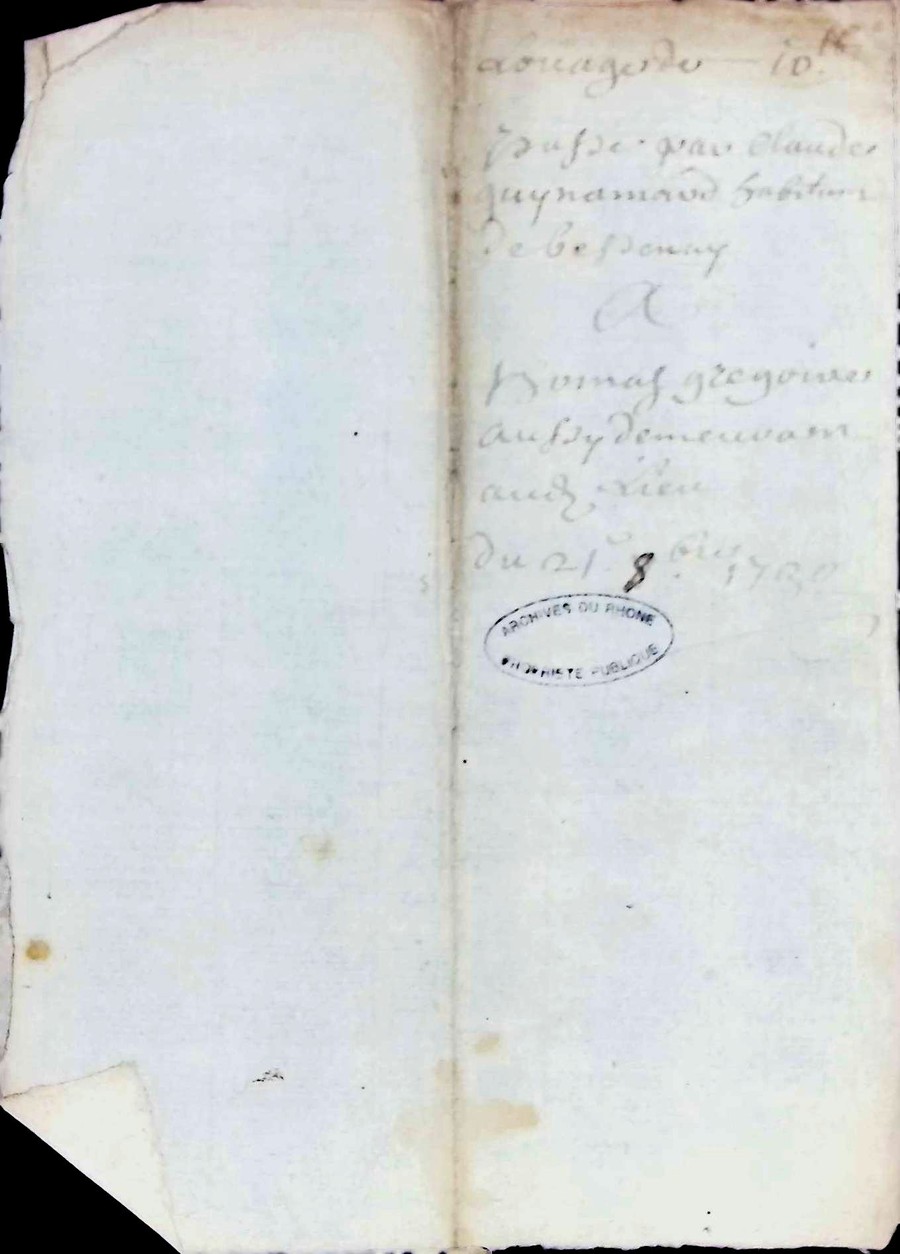 louage de — 10 ##
passé par Claude
guynamard habitant
de bessenay
A
thomas gregoire
aussy demeurant
aud. Lieu
du 21e 8bre
ARCHIVES DU RHONE
PROPRIETE PUBLIQUE